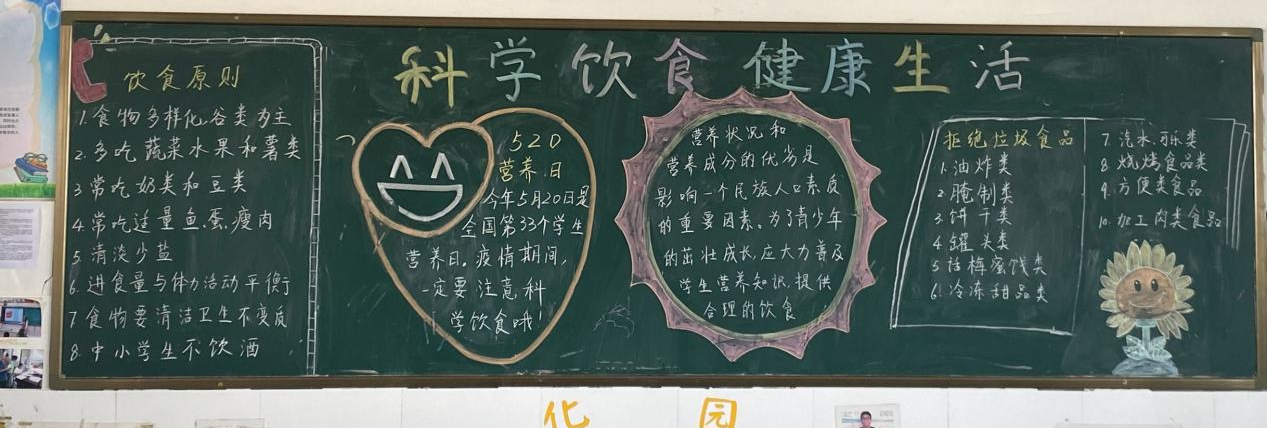 科学饮食 健康生活
饮食原则
1.食物多样化,谷类为主
2.多吃蔬菜水果和薯类
3.常吃奶类和豆类
4.常吃适量鱼.蛋.瘦肉
5.清淡少盐
6.进食量与体力活动平衡
7.食物要清洁卫生不变质
8.中小学生不饮酒
520
营养日
今年5月20日是
全国第33个学生
营养日。疫情期间,
一定要注意科
学饮食哦!
营养状况和
营养成分的优劣是
影响一个民族人口素质
的重要因素。为了青少年
的茁壮成长,应大力普及
学生营养知识,提供
合理的饮食
拒绝垃圾食品
1.油炸类
2.腌制类
3.饼干类
4.罐头类
5.话梅蜜饯类
6.冷冻甜品类
7.汽水.可乐类
8.烧烤食品类
9.方便类食品
10.加工肉类食品
化 园